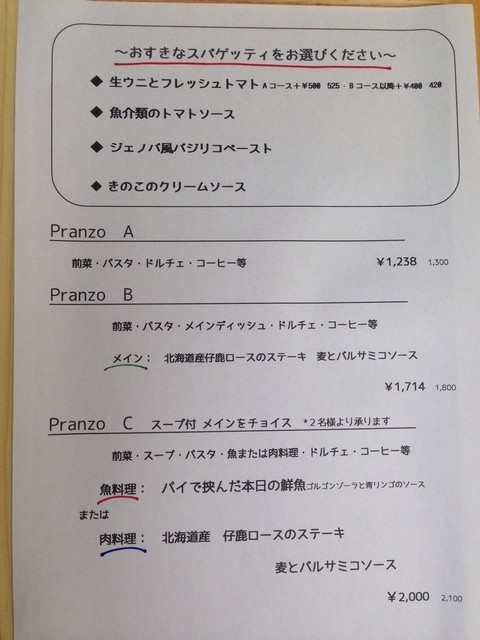 ～おすきなスパゲッティをお選びください～
◆ 生ウニとフレッシュトマト Aコース＋￥500 525・Bコース以降＋￥400 420
◆ 魚介類のトマトソース
◆ ジェノバ風バジリコペースト
◆ きのこのクリームソース
Pranzo A
前菜・パスタ・ドルチェ・コーヒー等 ￥1,238 1,300
Pranzo B
前菜・パスタ・メインディッシュ・ドルチェ・コーヒー等
メイン： 北海道産仔鹿ロースのステーキ 麦とバルサミコソース
￥1,714 1,800
Pranzo C スープ付 メインをチョイス *２名様より承ります
前菜・スープ・パスタ・魚または肉料理・ドルチェ・コーヒー等
魚料理： パイで挟んだ本日の鮮魚ゴルゴンゾーラと青リンゴのソース
または
肉料理： 北海道産 仔鹿ロースのステーキ
麦とバルサミコソース
￥2,000 2,100